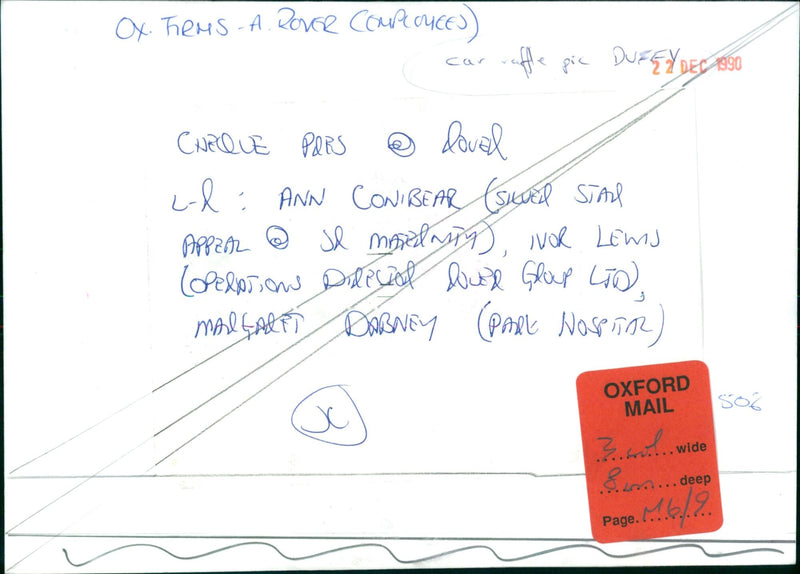 OX. FIRMS - A. ROVER (EMPLOYEES)
car raffle pic DUFFY
22 DEC 1990
CHEQUE PRES @ ROVER
L-R : ANN CONIBEAR (SILVER STAR
APPEAL @ JR MATERNITY), IVOR LEWIS
(OPERATIONS DIRECTOR ROVER GROUP LTD),
MARGARET DABNEY (PARK HOSPITAL)
JC
506
OXFORD
MAIL
3 col wide
8 cm deep
Page M6/9